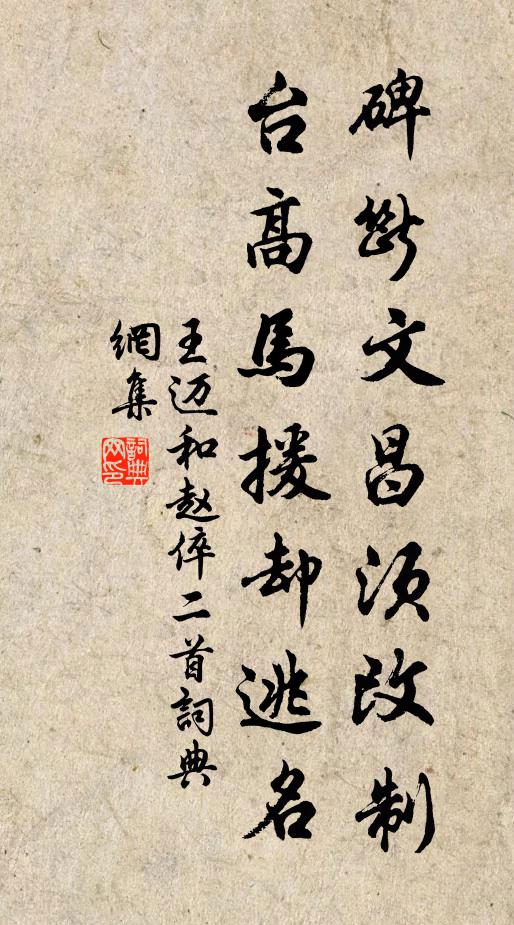 碑断文昌须改制
台高馬援却逃名
王迈和赵倅二首詞典
網集
詞典网印